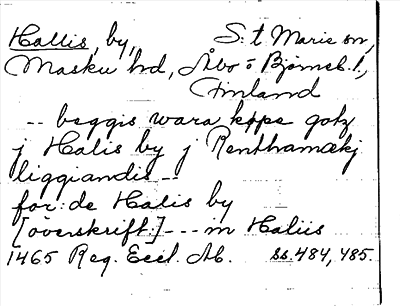 Hallis, by, S:t Marie sn,
Masku hd, Åbo o Björneb. l.,
Finland
-- beggis wara køpe gotz
j Halis by j Renthamækj
liggiandis --
for:de Halis by
[överskrift:] --- in Haliis
1465 Reg. Eccl. Ab. ss. 484, 485.